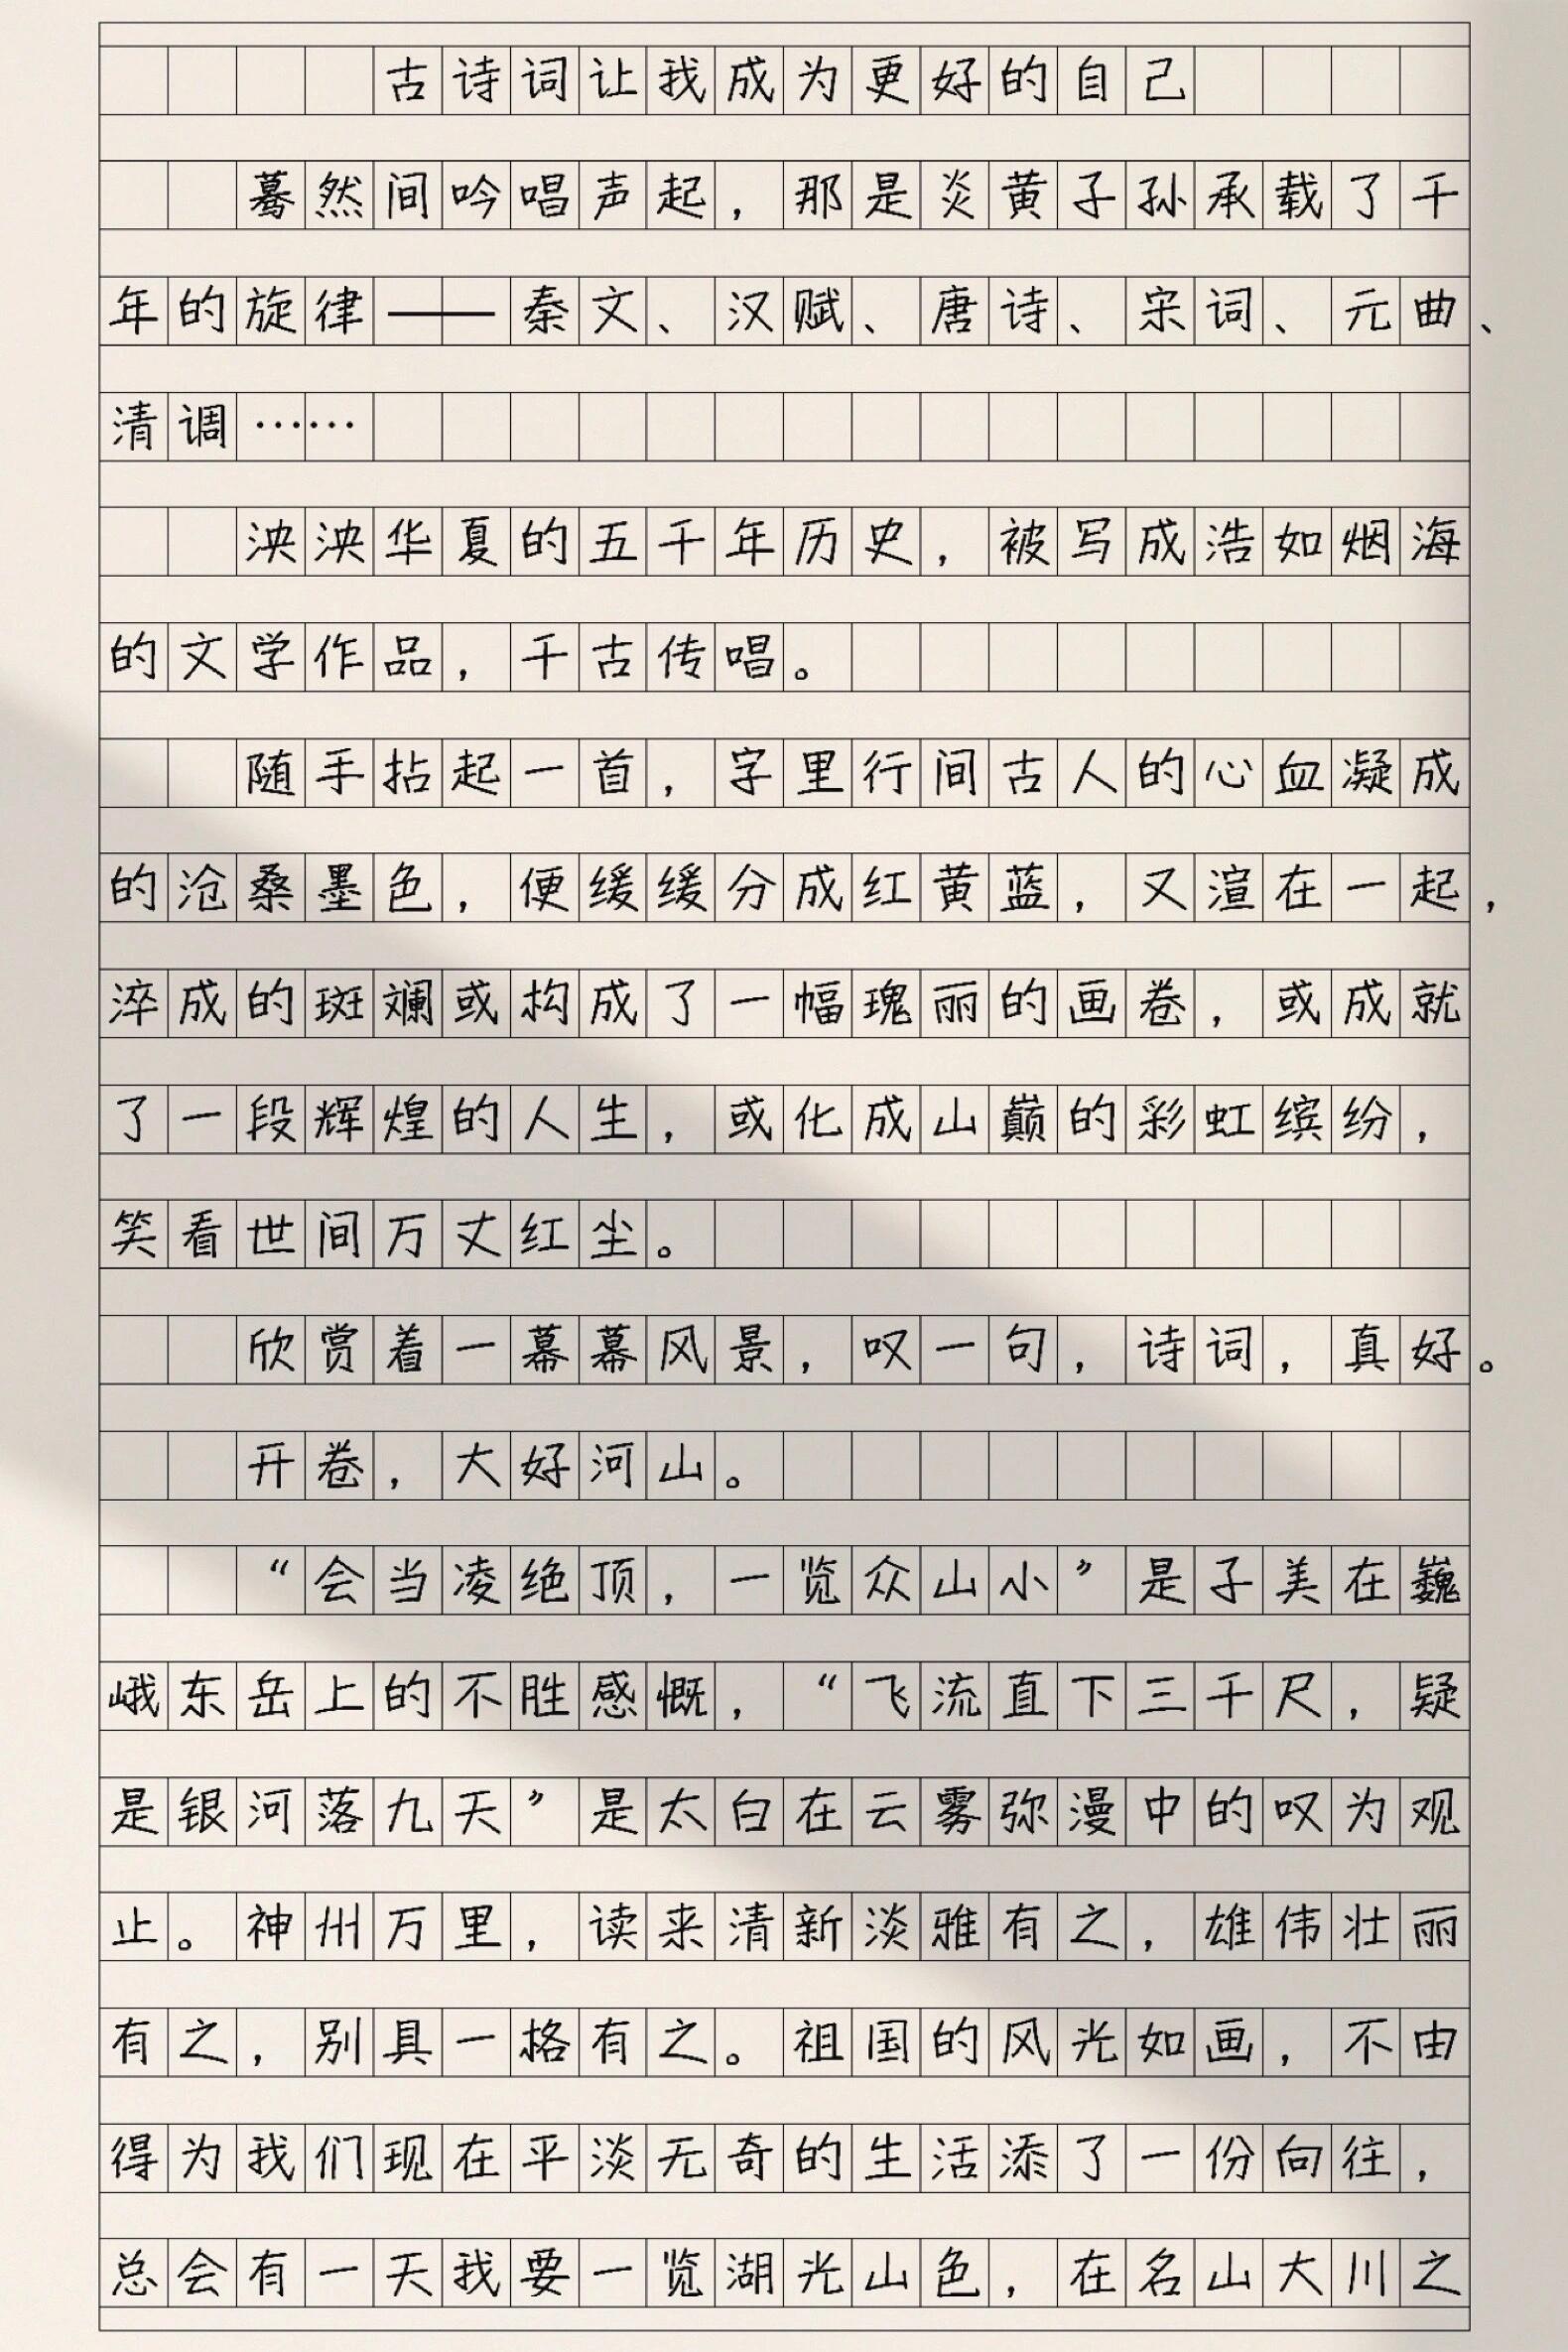 古诗词让我成为更好的自己
蓦然间吟唱声起，那是炎黄子孙承载了千
年的旋律——秦文、汉赋、唐诗、宋词、元曲、
清调……
泱泱华夏的五千年历史，被写成浩如烟海
的文学作品，千古传唱。
随手拈起一首，字里行间古人的心血凝成
的沧桑墨色，便缓缓分成红黄蓝，又渲在一起，
淬成的斑斓或构成了一幅瑰丽的画卷，或成就
了一段辉煌的人生，或化成山巅的彩虹缤纷，
笑看世间万丈红尘。
欣赏着一幕幕风景，叹一句，诗词，真好。
开卷，大好河山。
“会当凌绝顶，一览众山小”是子美在巍
峨东岳上的不胜感慨，“飞流直下三千尺，疑
是银河落九天”是太白在云雾弥漫中的叹为观
止。神州万里，读来清新淡雅有之，雄伟壮丽
有之，别具一格有之。祖国的风光如画，不由
得为我们现在平淡无奇的生活添了一份向往，
总会有一天我要一览湖光山色，在名山大川之